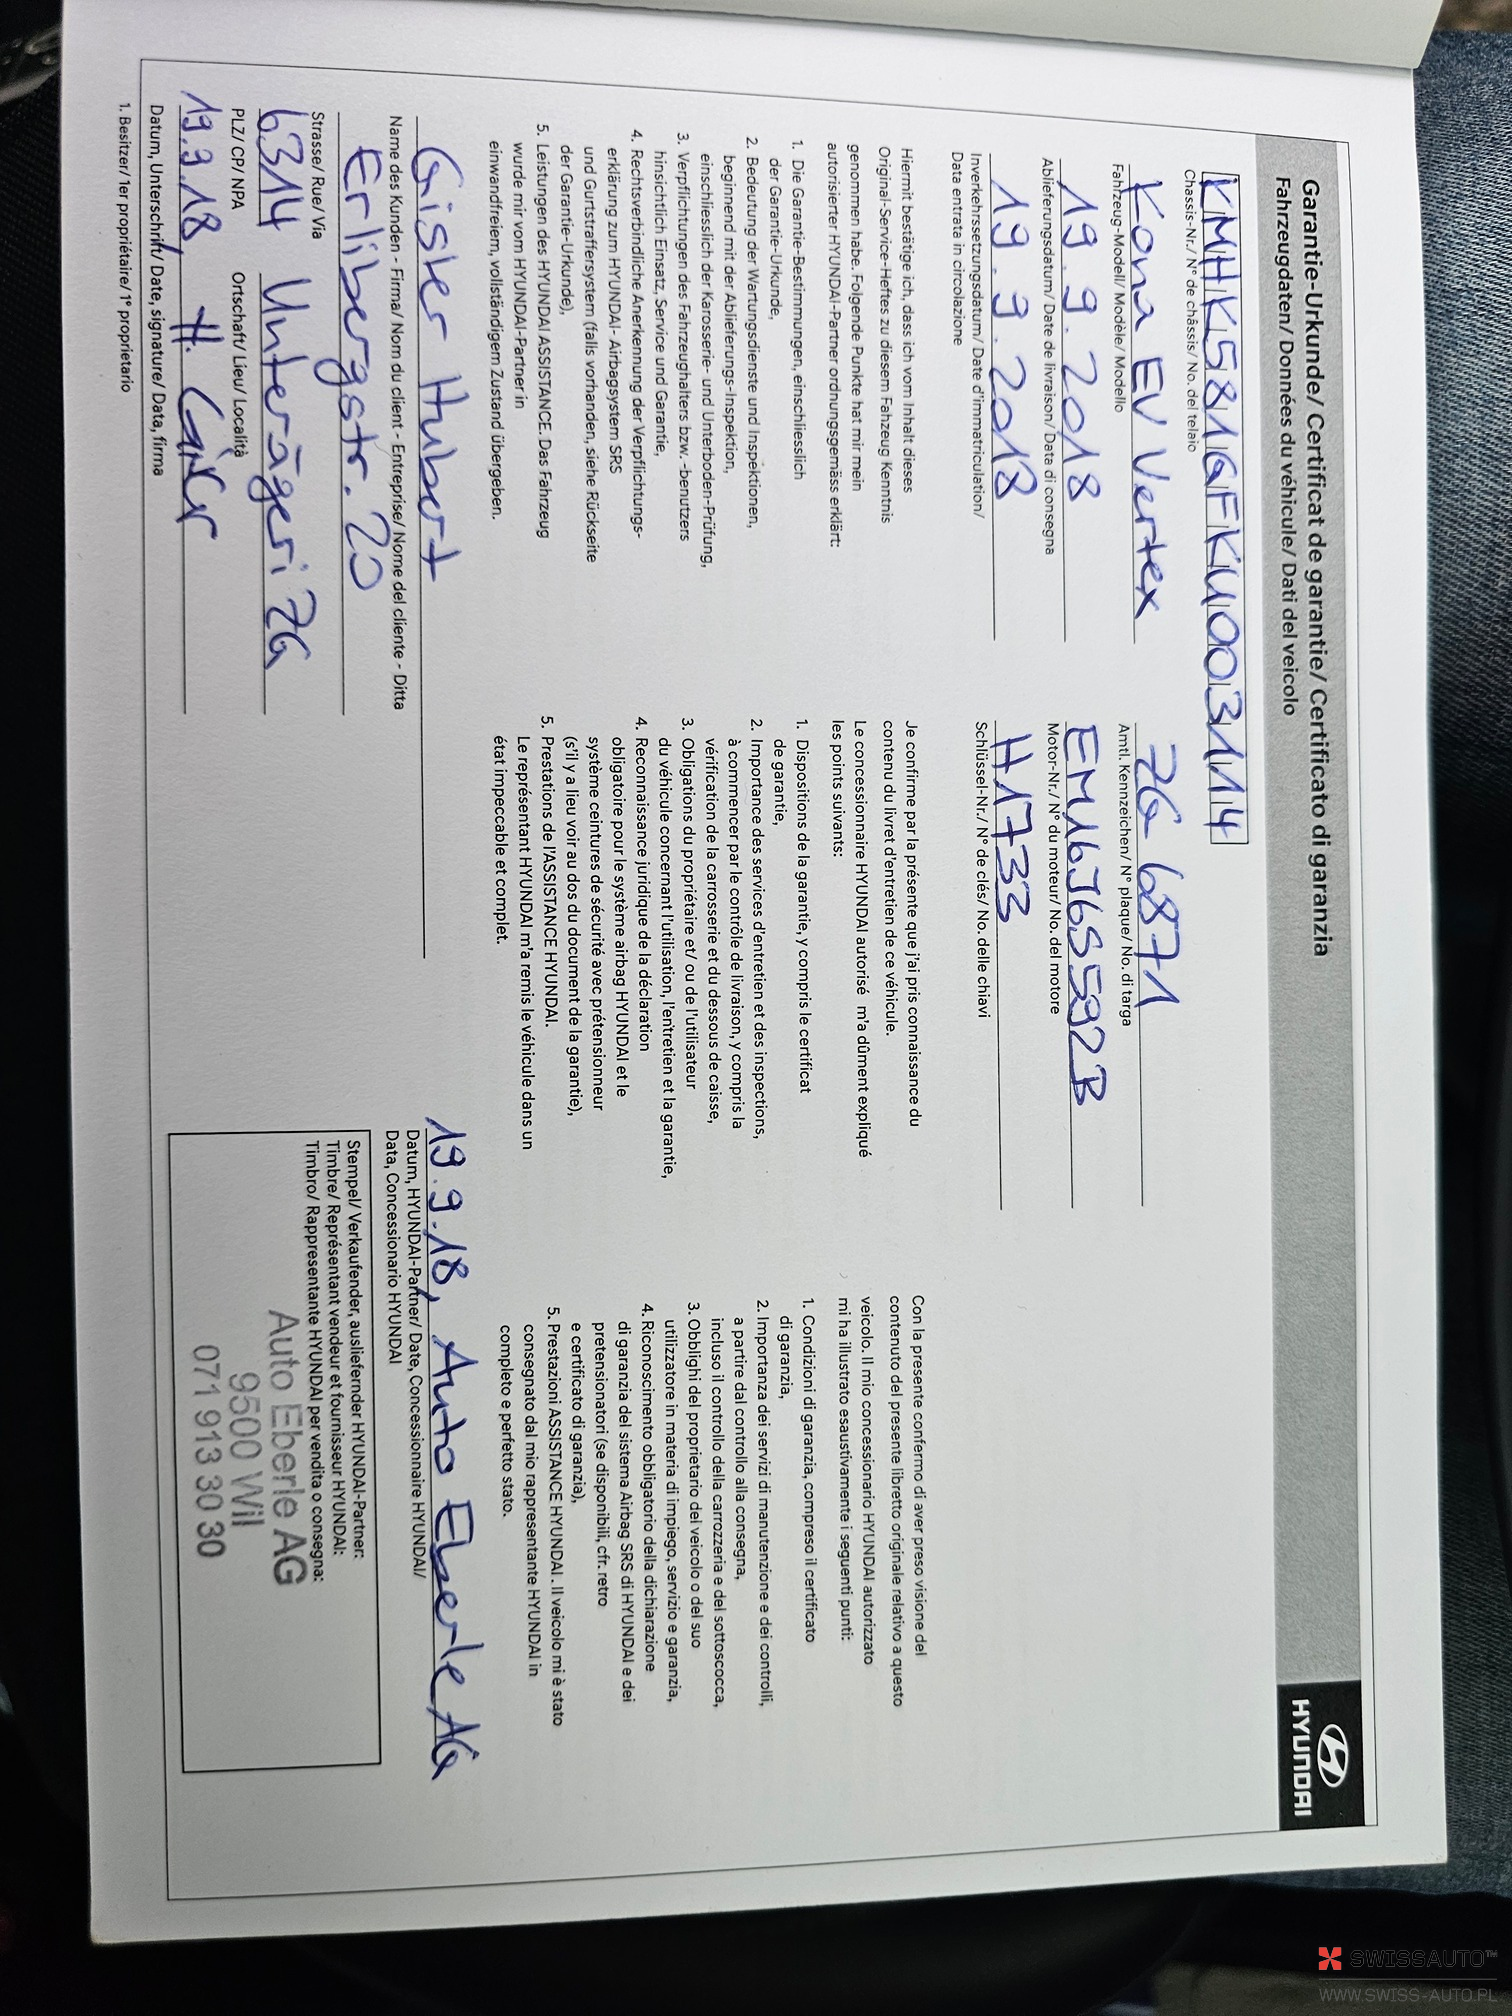 Garantie-Urkunde/ Certificat de garantie/ Certificato di garanzia
Fahrzeugdaten/ Données du véhicule/ Dati del veicolo
HYUNDAI
KMHK581GFKU003114
Chassis-Nr./ N° de châssis/ No. del telaio
Kona EV Vertex
Fahrzeug-Modell/ Modèle/ Modello
ZG 6871
Amtl. Kennzeichen/ N° plaque/ No. di targa
19.9.2018
Ablieferungsdatum/ Date de livraison/ Data di consegna
EM16J6S592B
Motor-Nr./ N° du moteur/ No. del motore
19.9.2018
Inverkehrssetzungsdatum/ Date d'immatriculation/
Data entrata in circolazione
H1733
Schlüssel-Nr./ N° de clés/ No. delle chiavi
Hiermit bestätige ich, dass ich vom Inhalt dieses
Original-Service-Heftes zu diesem Fahrzeug Kenntnis
genommen habe. Folgende Punkte hat mir mein
autorisierter HYUNDAI-Partner ordnungsgemäss erklärt:
1. Die Garantie-Bestimmungen, einschliesslich
der Garantie-Urkunde,
2. Bedeutung der Wartungsdienste und Inspektionen,
beginnend mit der Ablieferungs-Inspektion,
einschliesslich der Karosserie- und Unterboden-Prüfung,
3. Verpflichtungen des Fahrzeughalters bzw. -benutzers
hinsichtlich Einsatz, Service und Garantie,
4. Rechtsverbindliche Anerkennung der Verpflichtungs-
erklärung zum HYUNDAI- Airbagsystem SRS
und Gurtstraffersystem (falls vorhanden, siehe Rückseite
der Garantie-Urkunde),
5. Leistungen des HYUNDAI ASSISTANCE. Das Fahrzeug
wurde mir vom HYUNDAI-Partner in
einwandfreiem, vollständigem Zustand übergeben.
Je confirme par la présente que j'ai pris connaissance du
contenu du livret d'entretien de ce véhicule.
Le concessionnaire HYUNDAI autorisé m'a dûment expliqué
les points suivants:
1. Dispositions de la garantie, y compris le certificat
de garantie,
2. Importance des services d'entretien et des inspections,
à commencer par le contrôle de livraison, y compris la
vérification de la carrosserie et du dessous de caisse,
3. Obligations du propriétaire et/ ou de l'utilisateur
du véhicule concernant l'utilisation, l'entretien et la garantie,
4. Reconnaissance juridique de la déclaration
obligatoire pour le système airbag HYUNDAI et le
système ceintures de sécurité avec prétensionneur
(s'il y a lieu voir au dos du document de la garantie),
5. Prestations de l'ASSISTANCE HYUNDAI.
Le représentant HYUNDAI m'a remis le véhicule dans un
état impeccable et complet.
Con la presente confermo di aver preso visione del
contenuto del presente libretto originale relativo a questo
veicolo. Il mio concessionario HYUNDAI autorizzato
mi ha illustrato esaustivamente i seguenti punti:
1. Condizioni di garanzia, compreso il certificato
di garanzia,
2. Importanza dei servizi di manutenzione e dei controlli,
a partire dal controllo alla consegna,
incluso il controllo della carrozzeria e del sottoscocca,
3. Obblighi del proprietario del veicolo o del suo
utilizzatore in materia di impiego, servizio e garanzia,
4. Riconoscimento obbligatorio della dichiarazione
di garanzia del sistema Airbag SRS di HYUNDAI e dei
pretensionatori (se disponibili, cfr. retro
e certificato di garanzia),
5. Prestazioni ASSISTANCE HYUNDAI. Il veicolo mi è stato
consegnato dal mio rappresentante HYUNDAI in
completo e perfetto stato.
Gisler Hubert
Name des Kunden - Firma/ Nom du client - Entreprise/ Nome del cliente - Ditta
Erlibergstr. 20
Strasse/ Rue/ Via
6314 Unterägeri ZG
PLZ/ CP/ NPA Ortschaft/ Lieu/ Località
19.9.18, H. Gisler
Datum, Unterschrift/ Date, signature/ Data, firma
1. Besitzer/ 1er propriétaire/ 1° proprietario
19.9.18, Auto Eberle AG
Datum, HYUNDAI-Partner/ Date, Concessionnaire HYUNDAI/
Data, Concessionario HYUNDAI
Stempel/ Verkaufender, ausliefernder HYUNDAI-Partner:
Timbre/ Représentant vendeur et fournisseur HYUNDAI:
Timbro/ Rappresentante HYUNDAI per vendita o consegna:
Auto Eberle AG
9500 Wil
071 913 30 30
SWISSAUTO™
WWW.SWISS-AUTO.PL